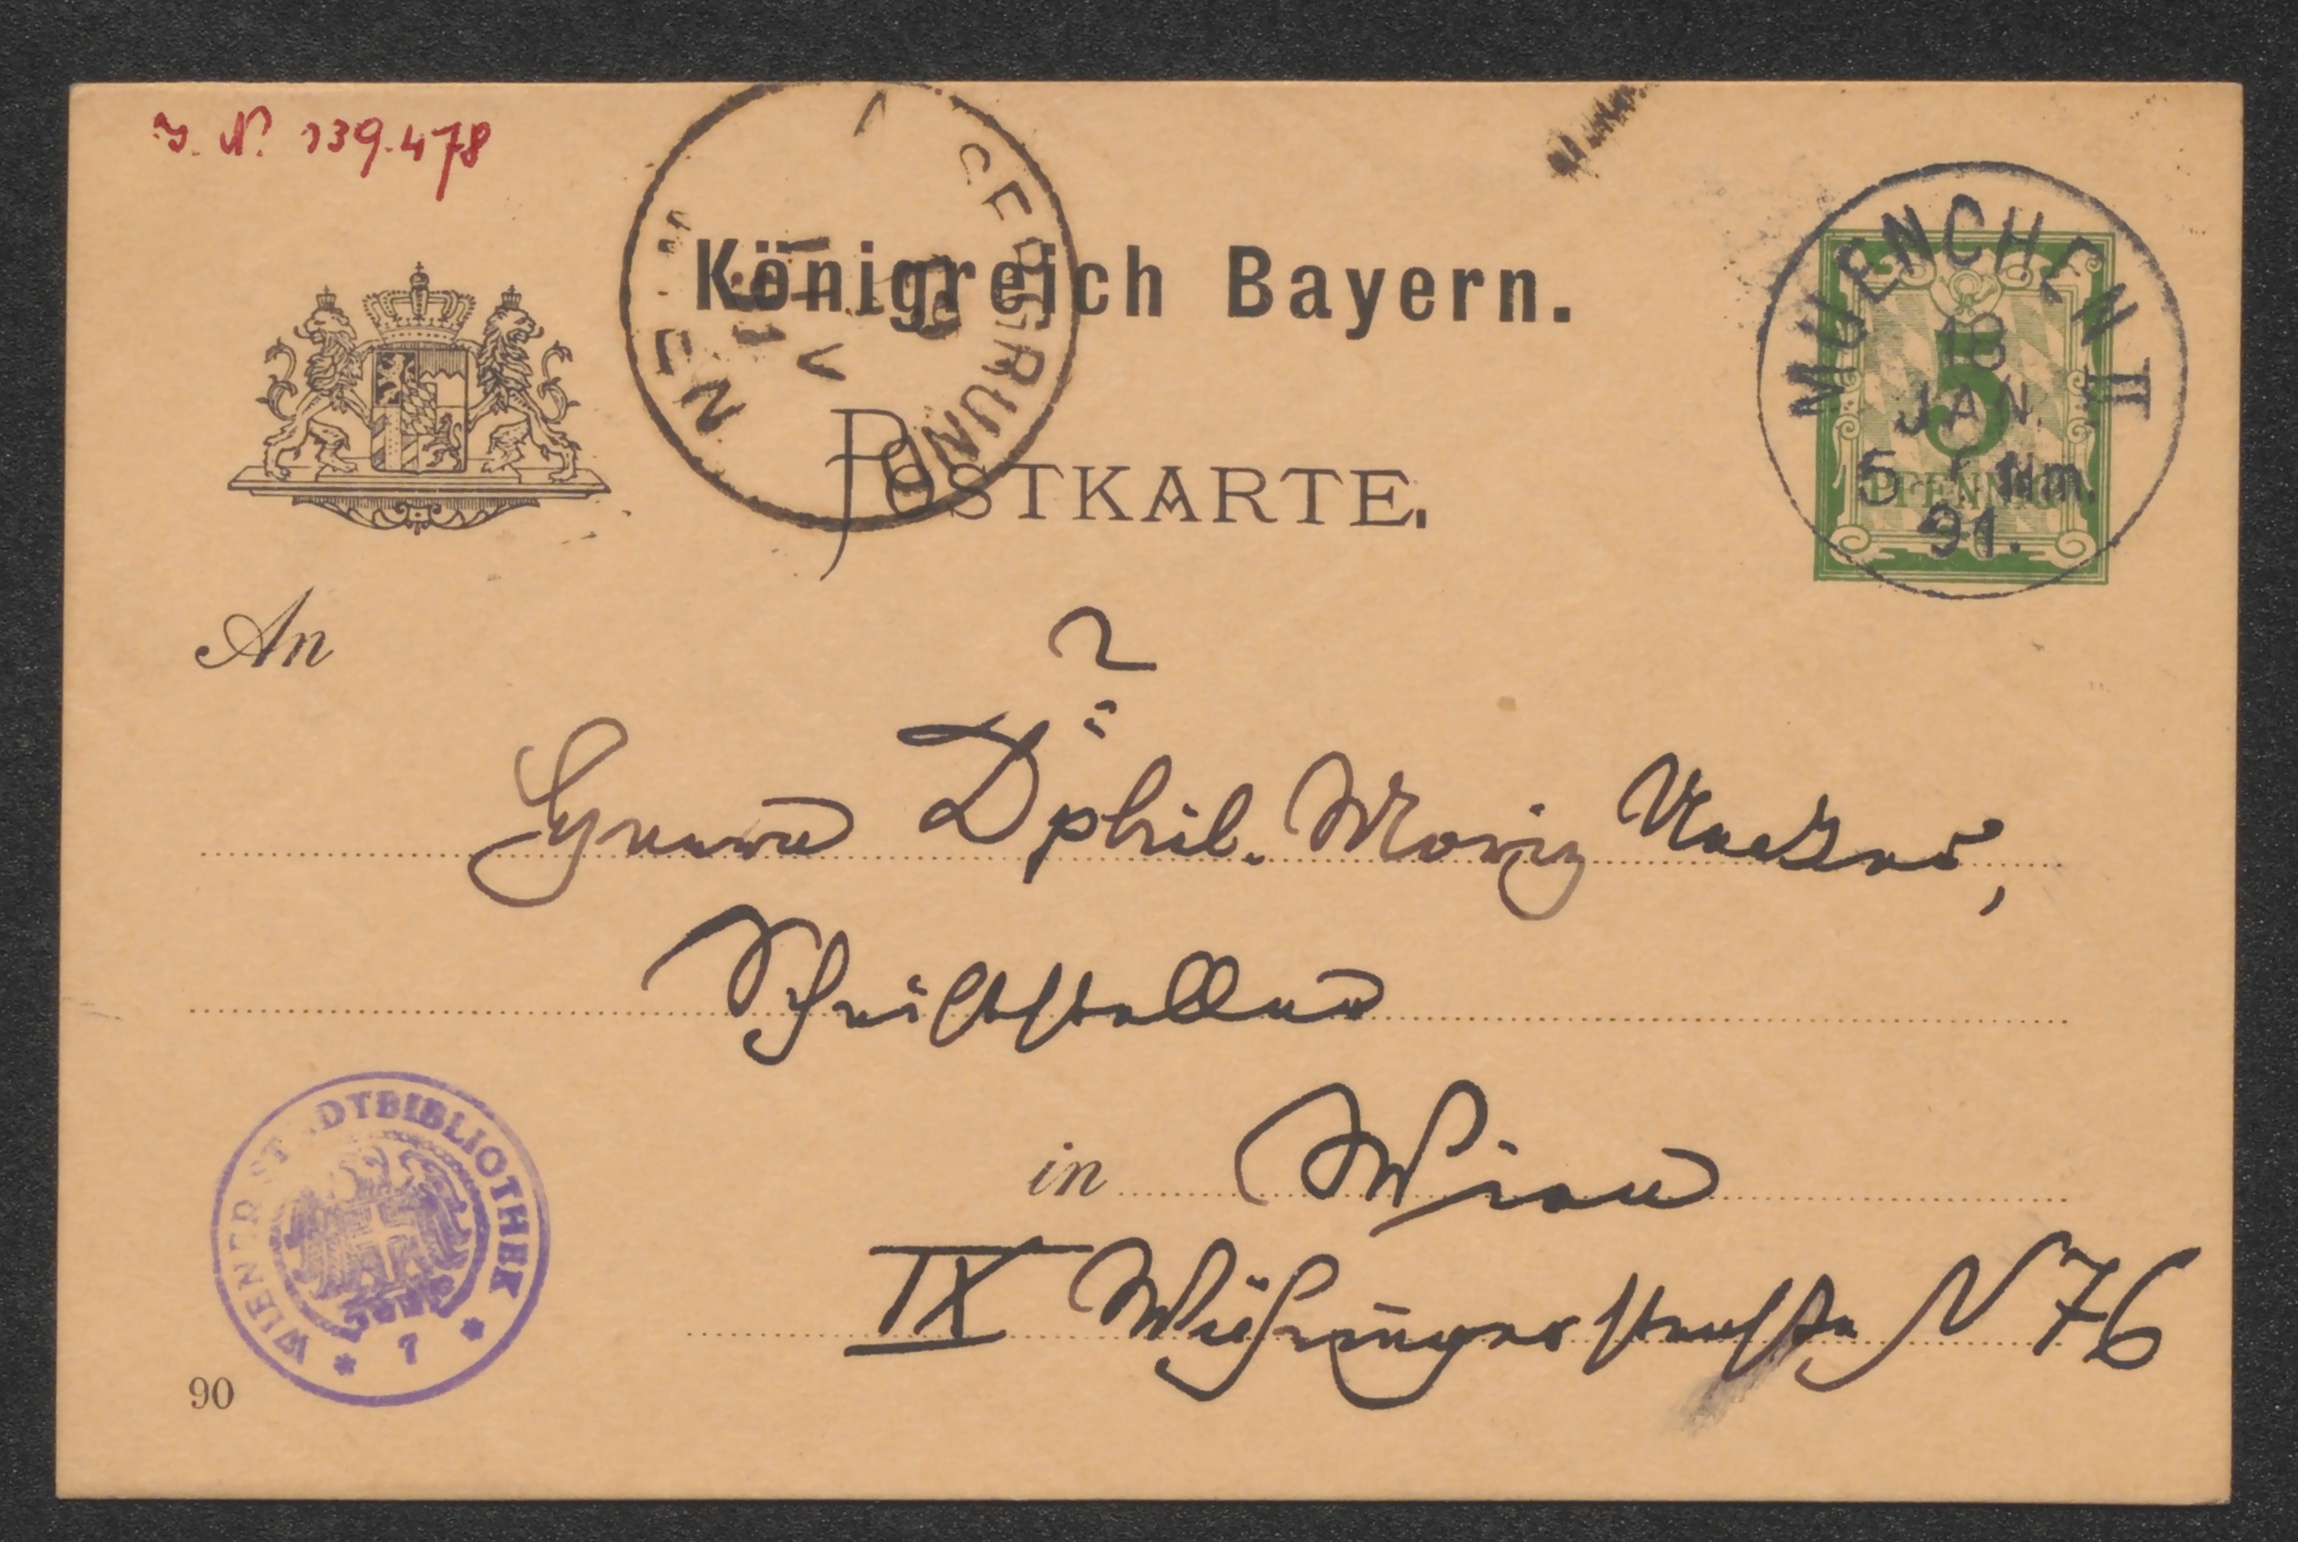 I. N. 139.478
Königreich Bayern.
POSTKARTE.
ALSERGRUND
WIEN
MUENCHEN II
18
JAN.
5 Nm.
91.
5
PFENNIG
An
Herrn Dr phil. Moriz Necker,
Schriftsteller
in Wien
IX Währingerstraße N 76
WIENER STADTBIBLIOTHEK
* 7 *
90